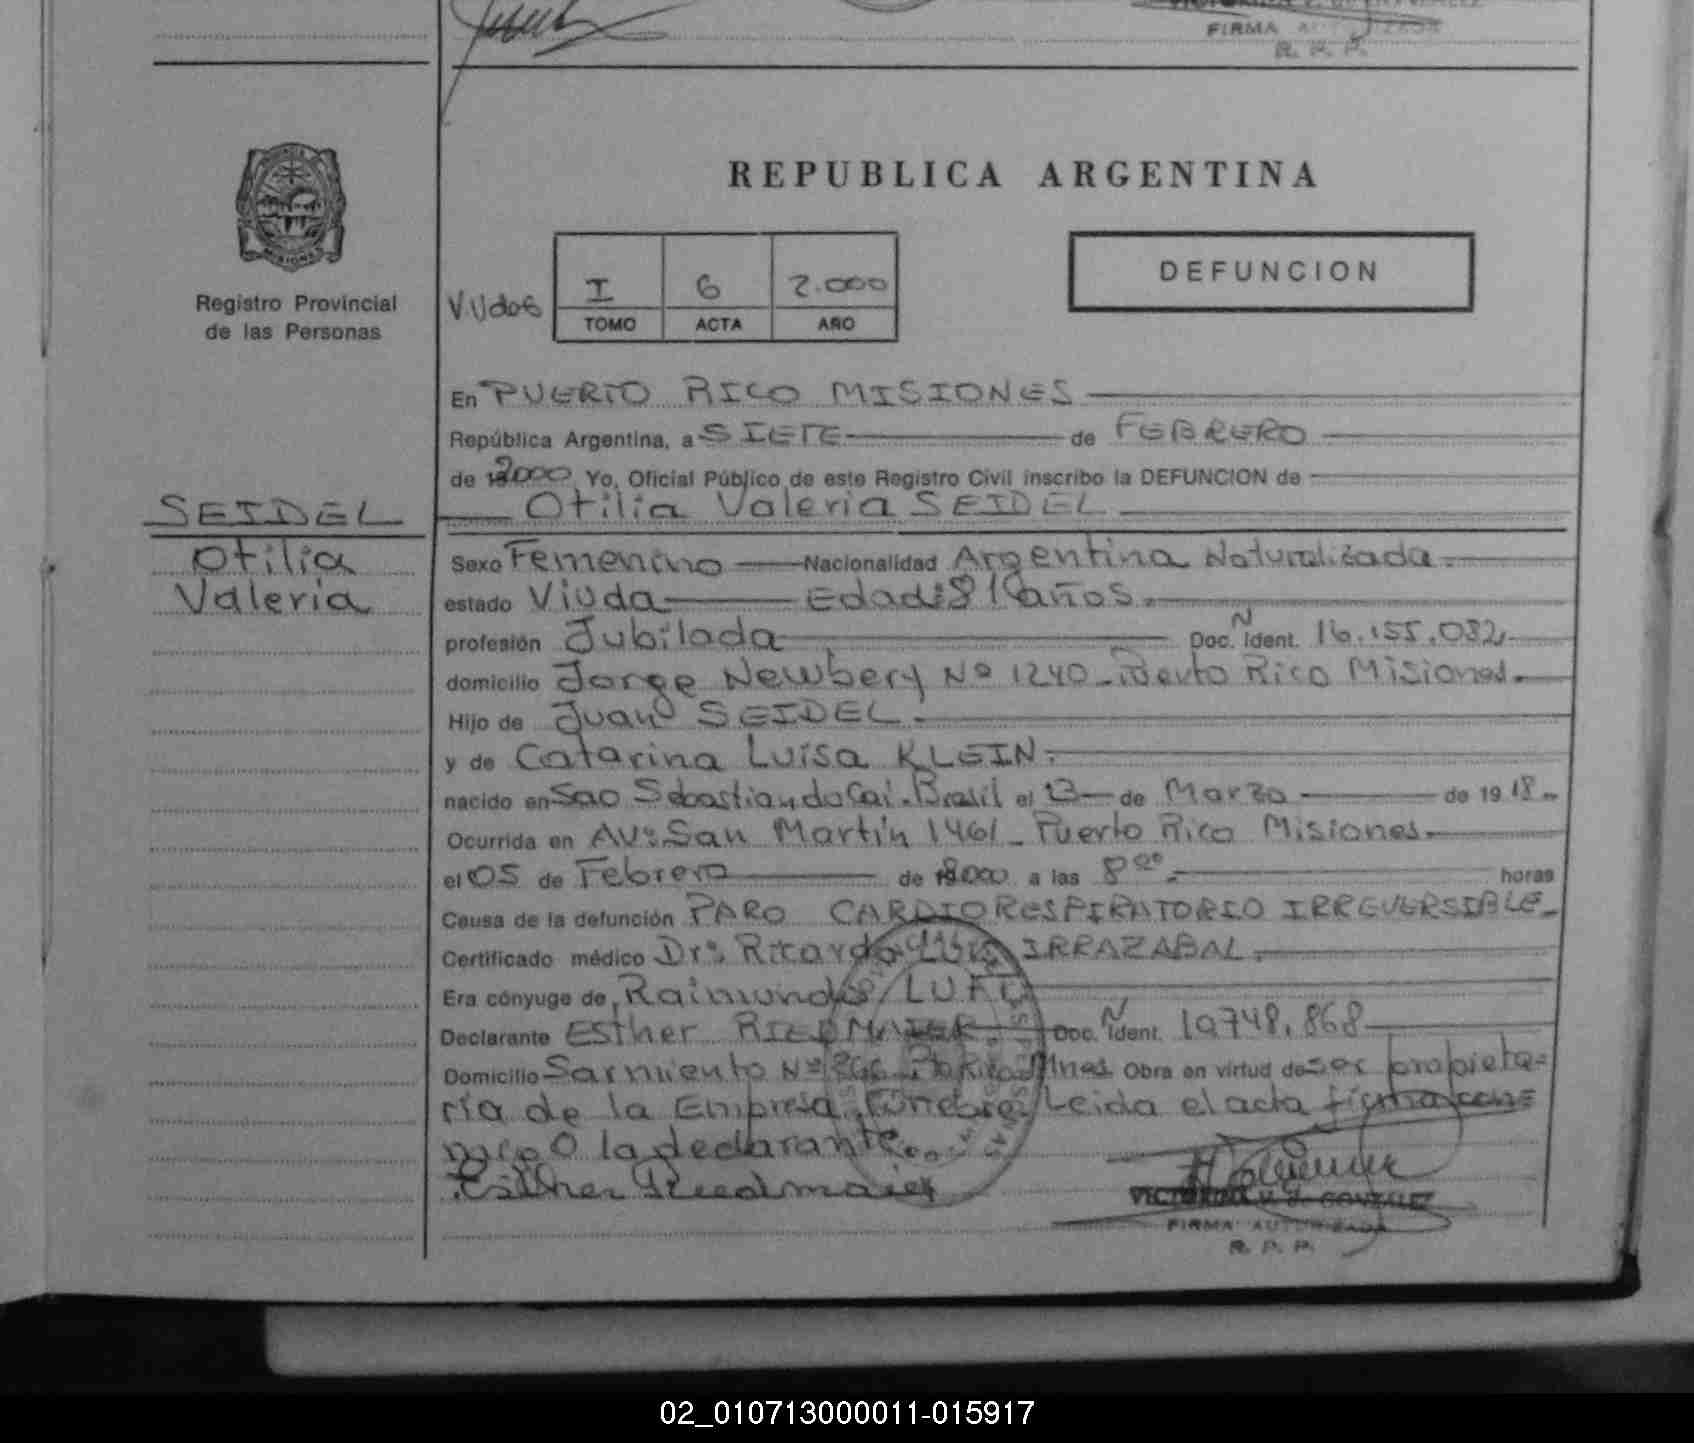 FIRMA AUTORIZADA
R. P. P.
REPUBLICA ARGENTINA
DEFUNCION
MISIONES
Registro Provincial
de las Personas
Viudos
I 6 2.000
TOMO ACTA AÑO
En PUERTO RICO MISIONES
República Argentina, a SIETE de FEBRERO
de 2000 Yo, Oficial Público de este Registro Civil inscribo la DEFUNCION de
SEIDEL
Otilia
Valeria
Otilia Valeria SEIDEL
Sexo Femenino Nacionalidad Argentina Naturalizada.
estado Viuda Edad: 81 años.
profesión Jubilada Doc. N Ident. 16.155.032
domicilio Jorge Newbery Nº 1240 - Puerto Rico Misiones.
Hijo de Juan SEIDEL.
y de Catarina Luisa KLEIN.
nacido en Sao Sebastian do Cai. Brasil el 13 de Marzo de 1918.
Ocurrida en Av: San Martin 1461 - Puerto Rico Misiones.
el 05 de Febrero de 2000 a las 8 00. horas
Causa de la defunción PARO CARDIORESPIRATORIO IRREVERSIBLE.
Certificado médico Dr: Ricardo Luis IRRAZABAL.
Era cónyuge de Raimundo LUFT
Declarante ESther RIEDMAIER Doc. N Ident. 10.748.868
Domicilio Sarmiento Nº Pto Rico Mnes Obra en virtud de ser propieta=
ria de la Empresa Fúnebre, Leida el acta firma con=
migo la declarante.
Esther Riedmaier
VICTORINA V. d. GONZALEZ
FIRMA AUTORIZADA
R. P. P.
02_010713000011-015917